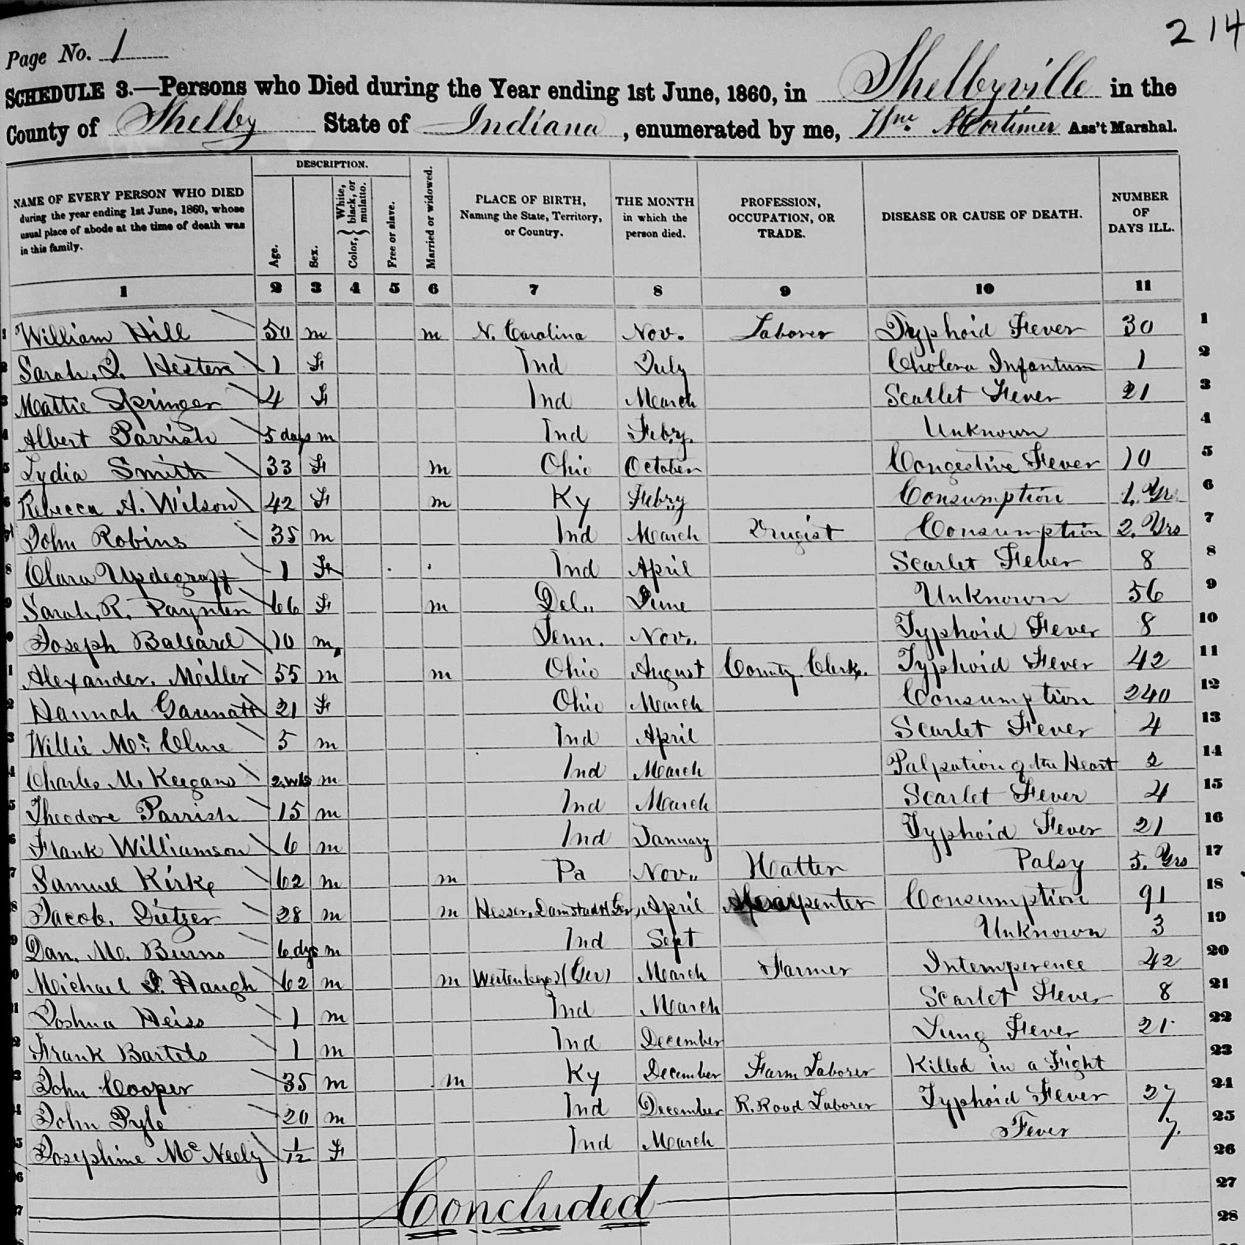 214
Page No. 1
SCHEDULE 3.—Persons who Died during the Year ending 1st June, 1860, in Shelbyville in the
County of Shelby State of Indiana, enumerated by me, Wm. Mortimer Ass't Marshal.
NAME OF EVERY PERSON WHO DIED during the year ending 1st June, 1860, whose usual place of abode at the time of death was in this family.
DESCRIPTION.
Age.
Sex.
Color, } White, black, or mulatto.
Free or slave.
Married or widowed.
PLACE OF BIRTH, Naming the State, Territory, or Country.
THE MONTH in which the person died.
PROFESSION, OCCUPATION, OR TRADE.
DISEASE OR CAUSE OF DEATH.
NUMBER OF DAYS ILL.
1 2 3 4 5 6 7 8 9 10 11
1 William Hill 50 m m N. Carolina Nov. Laborer Typhoid Fever 30 1
2 Sarah, J. Hester 1 F Ind July Cholera Infantum 1 2
3 Mattie Springer 4 F Ind March Scarlet Fever 21 3
4 Albert Parrish 5 days m Ind Feb'y. Unknown 4
5 Lydia Smith 33 F m Ohio October Congestive Fever 10 5
6 Rebecca A. Wilson 42 F m Ky Febry Consumption 1. Yr. 6
7 John Robins 35 m Ind March Drugist Consumption 2. Yrs 7
8 Clara Updegraff 1 F Ind April Scarlet Fever 8 8
9 Sarah, R. Paynter 66 F m Del.. June Unknown 56 9
0 Joseph Baleard 10 m Tenn. Nov.. Typhoid Fever 8 10
1 Alexander. Miller 55 m m Ohio August County Clerk. Typhoid Fever 42 11
2 Hannah Gannatt 21 F Ohio March Consumption 240 12
3 Willie Mc. Clure 5 m Ind April Scarlet Fever 4 13
4 Charles M. Keegans 2 wks m Ind March Palpation of the Heart 2 14
5 Theodore Parrish 15 m Ind March Scarlet Fever 4 15
6 Frank Williamson 6 m Ind January Typhoid Fever 21 16
7 Samuel Kirk 62 m m Pa Nov.. Hatter Palsy 5. Yrs 17
8 Jacob. Dietzer 28 m m Hesser, Damstadt Ger, April Carpenter Consumption 91 18
9 Dan. M. Burns 6 dys m Ind Sept Unknown 3 19
0 Michael P. Haugh 62 m m Wertenberg (Ger) March Farmer Intemperence 42 20
1 Joshua Heiss 1 m Ind March Scarlet Fever 8 21
2 Frank Bartels 1 m Ind December Lung Fever 21 22
3 John Cooper 35 m m Ky December Farm Laborer Killed in a Fight 23
4 John Pyle 20 m Ind December R. Road Laborer Typhoid Fever 27 24
5 Josephine Mc Neely 1/12 F Ind March Fever 7. 25
6 26
7 Concluded 27
28